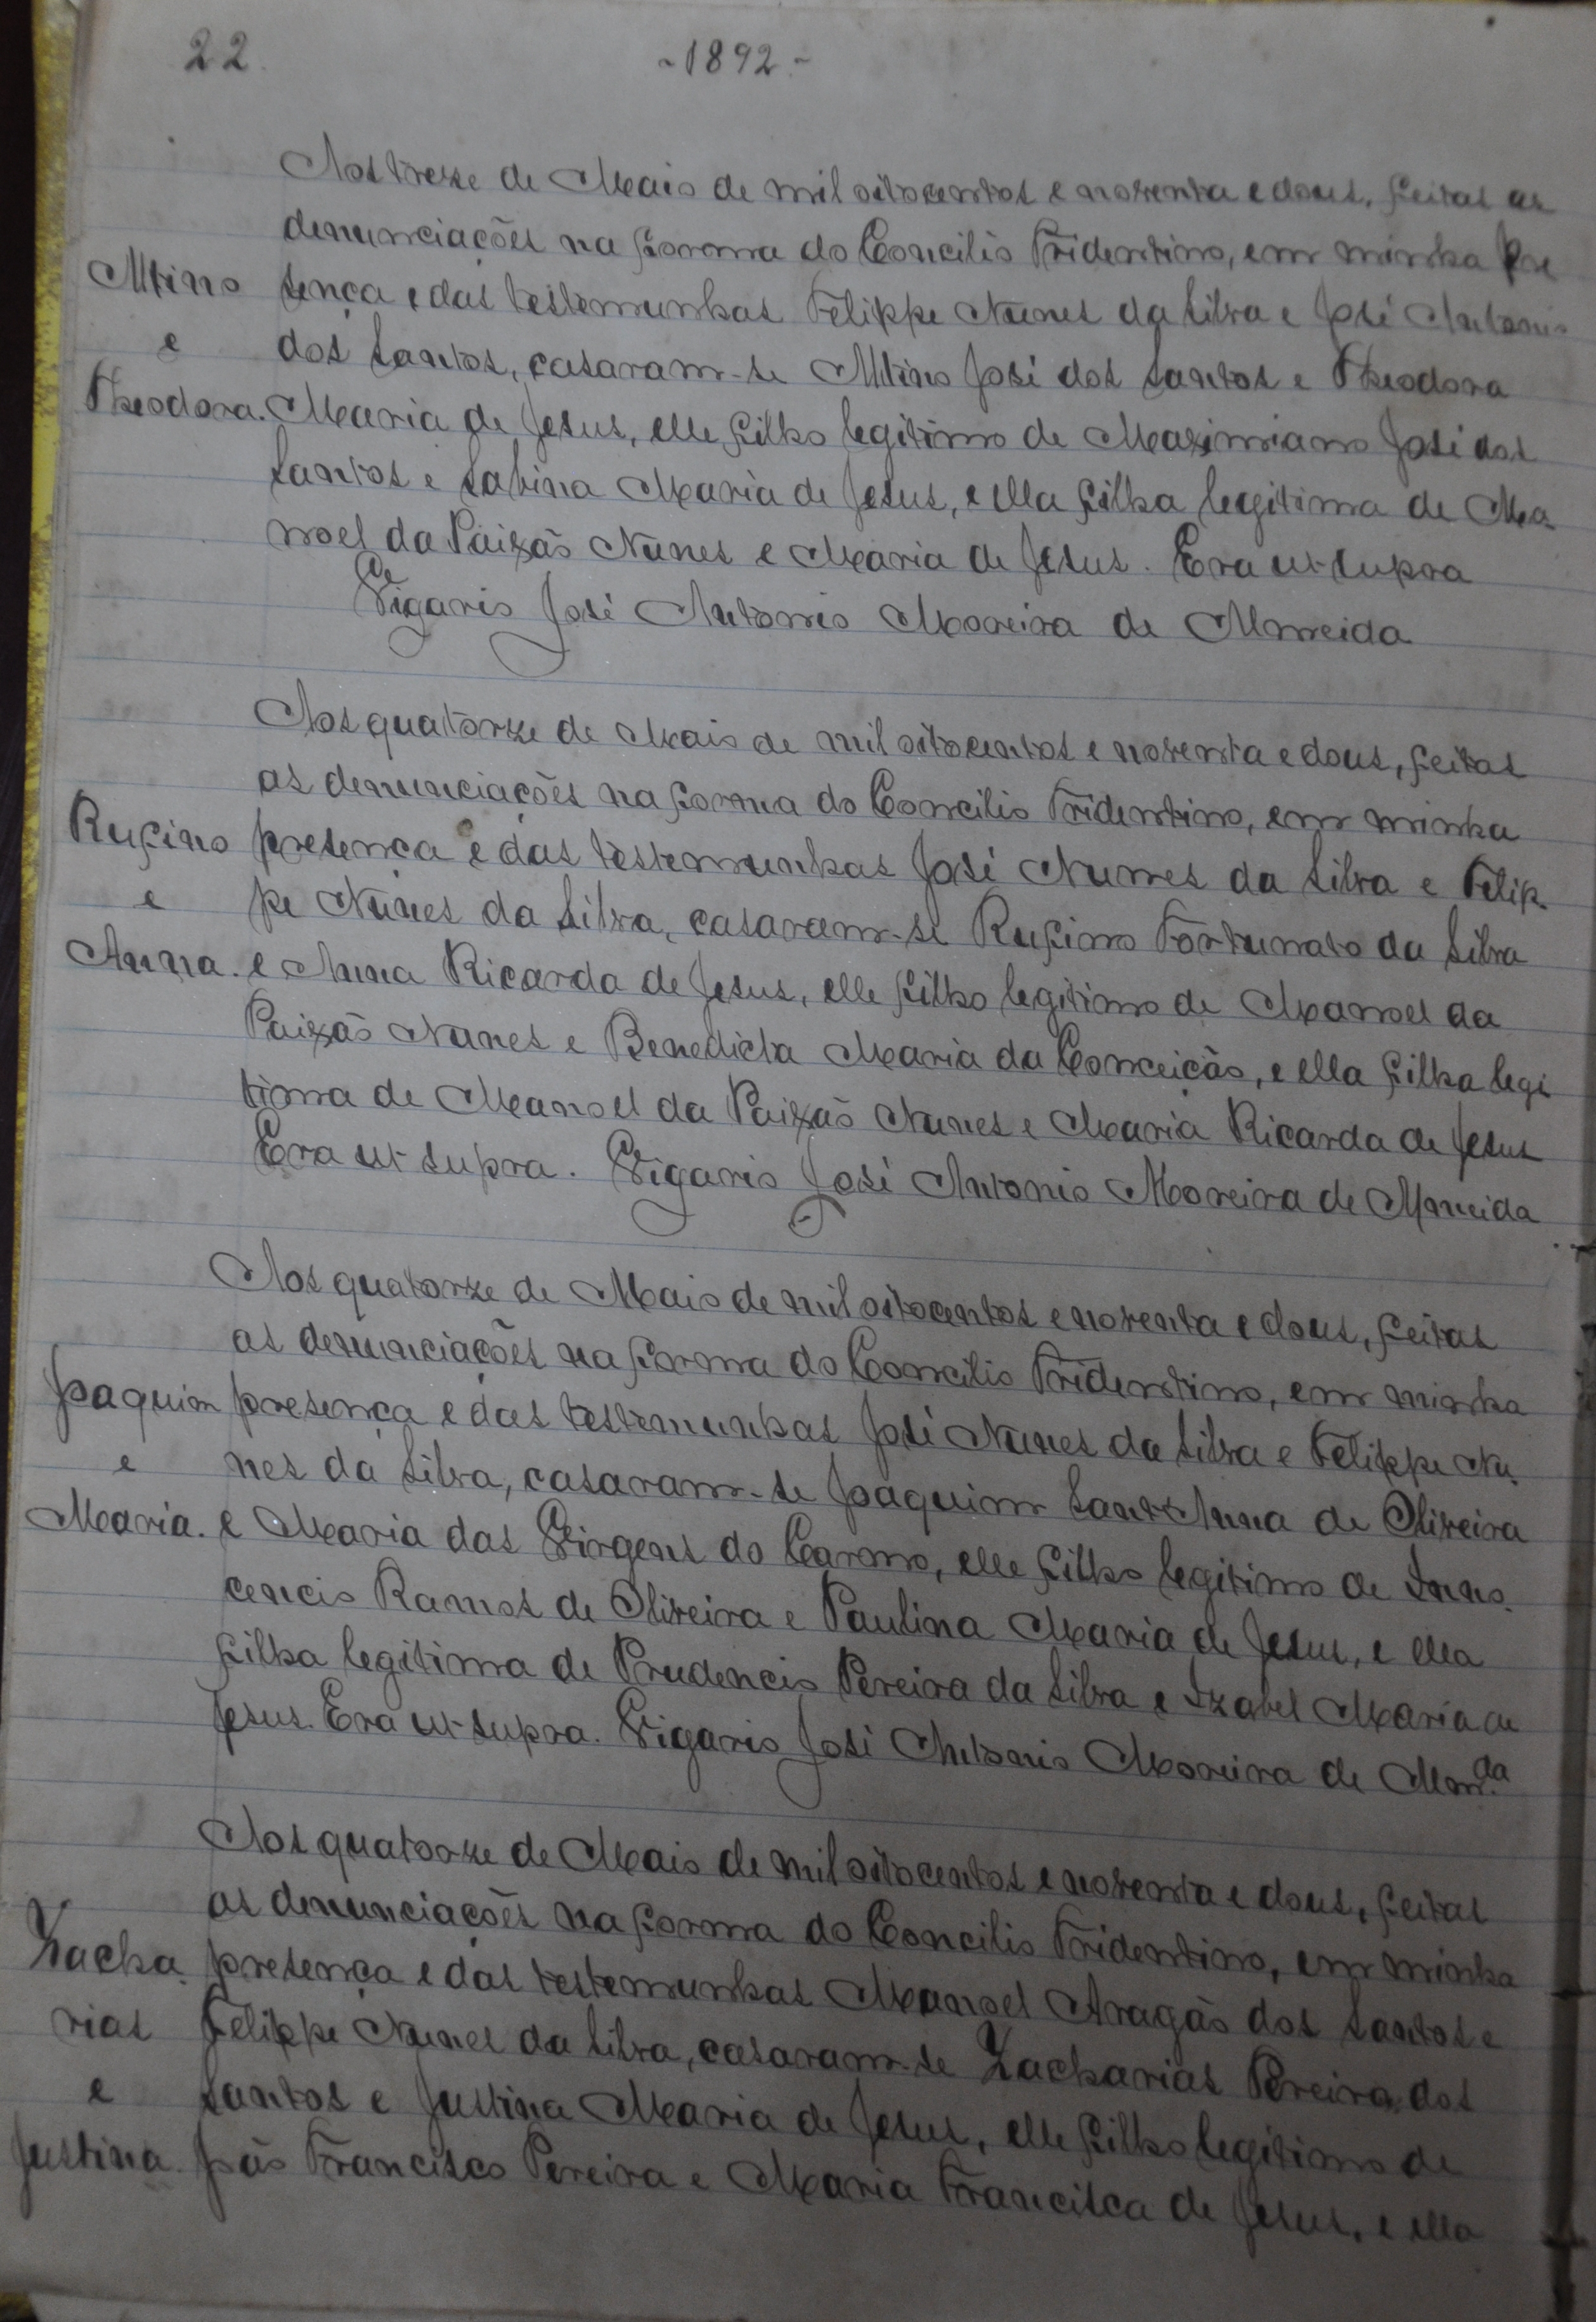 22.
-1892-
Aos treze de Maio de mil oitocentos e noventa e dous, feitas as
denunciações na forma do Concilio Tridentino, em minha pre
Altino
sença e das testemunhas Felippe Nunes da Silva e José Antonio
e
dos Santos, casaram-se Altino José dos Santos e Theodora
Theodora.
Maria de Jesus, elle filho legitimo de Maximiano José dos
Santos e Sabina Maria de Jesus, e ella filha legitima de Ma-
noel da Paixão Nunes e Maria de Jesus. Era ut supra
Vigario José Antonio Moreira de Almeida
Aos quatorze de Maio de mil oitocentos e noventa e dous, feitas
as denunciações na forma do Concilio Tridentino, em minha
Rufino
presença e das testemunhas José Nunes da Silva e Felip-
e
pe Nunes da Silva, casaram-se Rufino Fortunato da Silva
Anna.
e Anna Ricarda de Jesus, elle filho legitimo de Manoel da
Paixão Nunes e Benedicta Maria da Conceição, e ella filha legi
tima de Manoel da Paixão Nunes e Maria Ricarda de Jesus
Era ut supra. Vigario José Antonio Moreira de Almeida
Aos quatorze de Maio de mil oitocentos e noventa e dous, feitas
as denunciações na forma do Concilio Tridentino, em minha
Joaquim
presença e das testemunhas José Nunes da Silva e Felippe Nu-
e
nes da Silva, casaram-se Joaquim Sant'Anna de Oliveira
Maria.
e Maria das Virgens do Carmo, elle filho legitimo de Inno-
cencio Ramos de Oliveira e Paulina Maria de Jesus, e ella
filha legitima de Prudencio Pereira da Silva e Izabel Maria de
Jesus. Era ut supra. Vigario José Antonio Moreira de Alm.da
Aos quatorze de Maio de mil oitocentos e noventa e dous, feitas
as denunciações na forma do Concilio Tridentino, em minha
Zacha-
presença e das testemunhas Manoel Aragão dos Santos e
rias
Felippe Nunes da Silva, casaram-se Zacharias Pereira dos
e
Santos e Justina Maria de Jesus, elle filho legitimo de
Justina.
João Francisco Pereira e Maria Francisca de Jesus, e ella